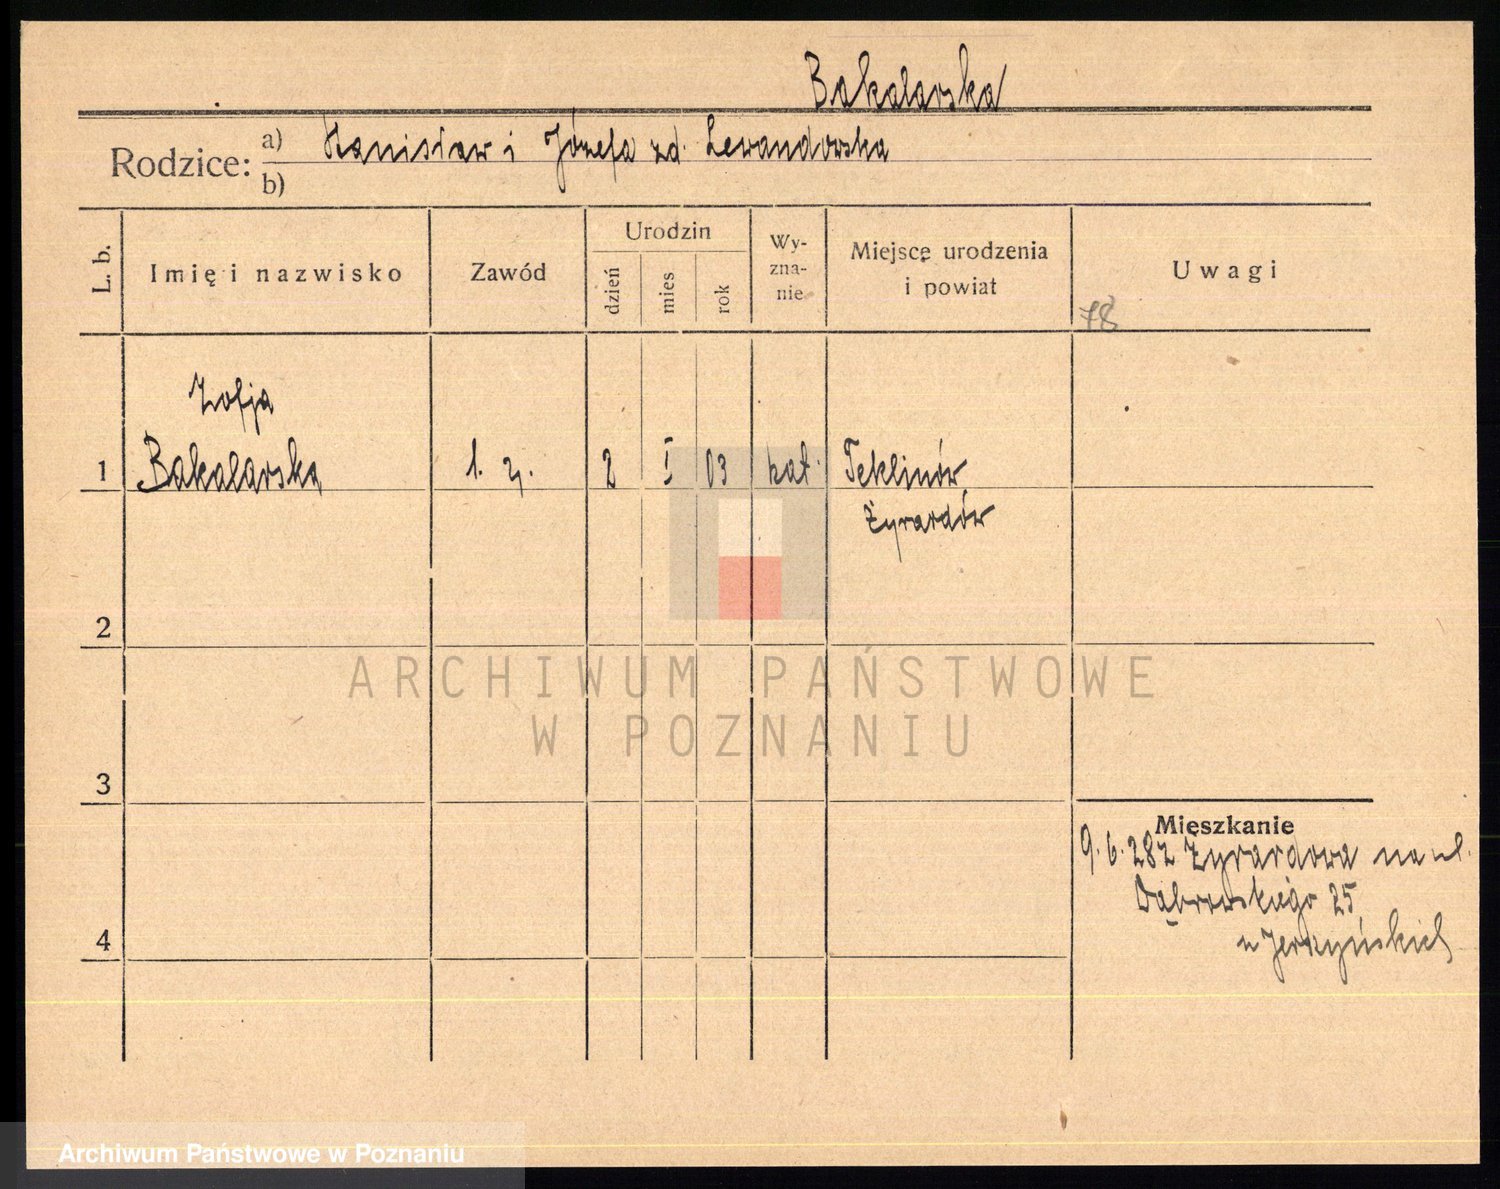 Bakalarska
Rodzice: a) Stanisław i Józefa zd. Lewandowska
b)
L. b.
Imię i nazwisko
Zawód
Urodzin
dzień
mies
rok
Wy-
zna-
nie
Miejsce urodzenia
i powiat
Uwagi
78
Zofja
1 Bakalarska 2 I 03 kat. Teklinów
Żyrardów
2
3
4
Mieszkanie
9. 6. 28 z Żyrardowa na ul.
Dąbrowskiego 25
u Jerzyńskich
ARCHIWUM PAŃSTWOWE
W POZNANIU
Archiwum Państwowe w Poznaniu